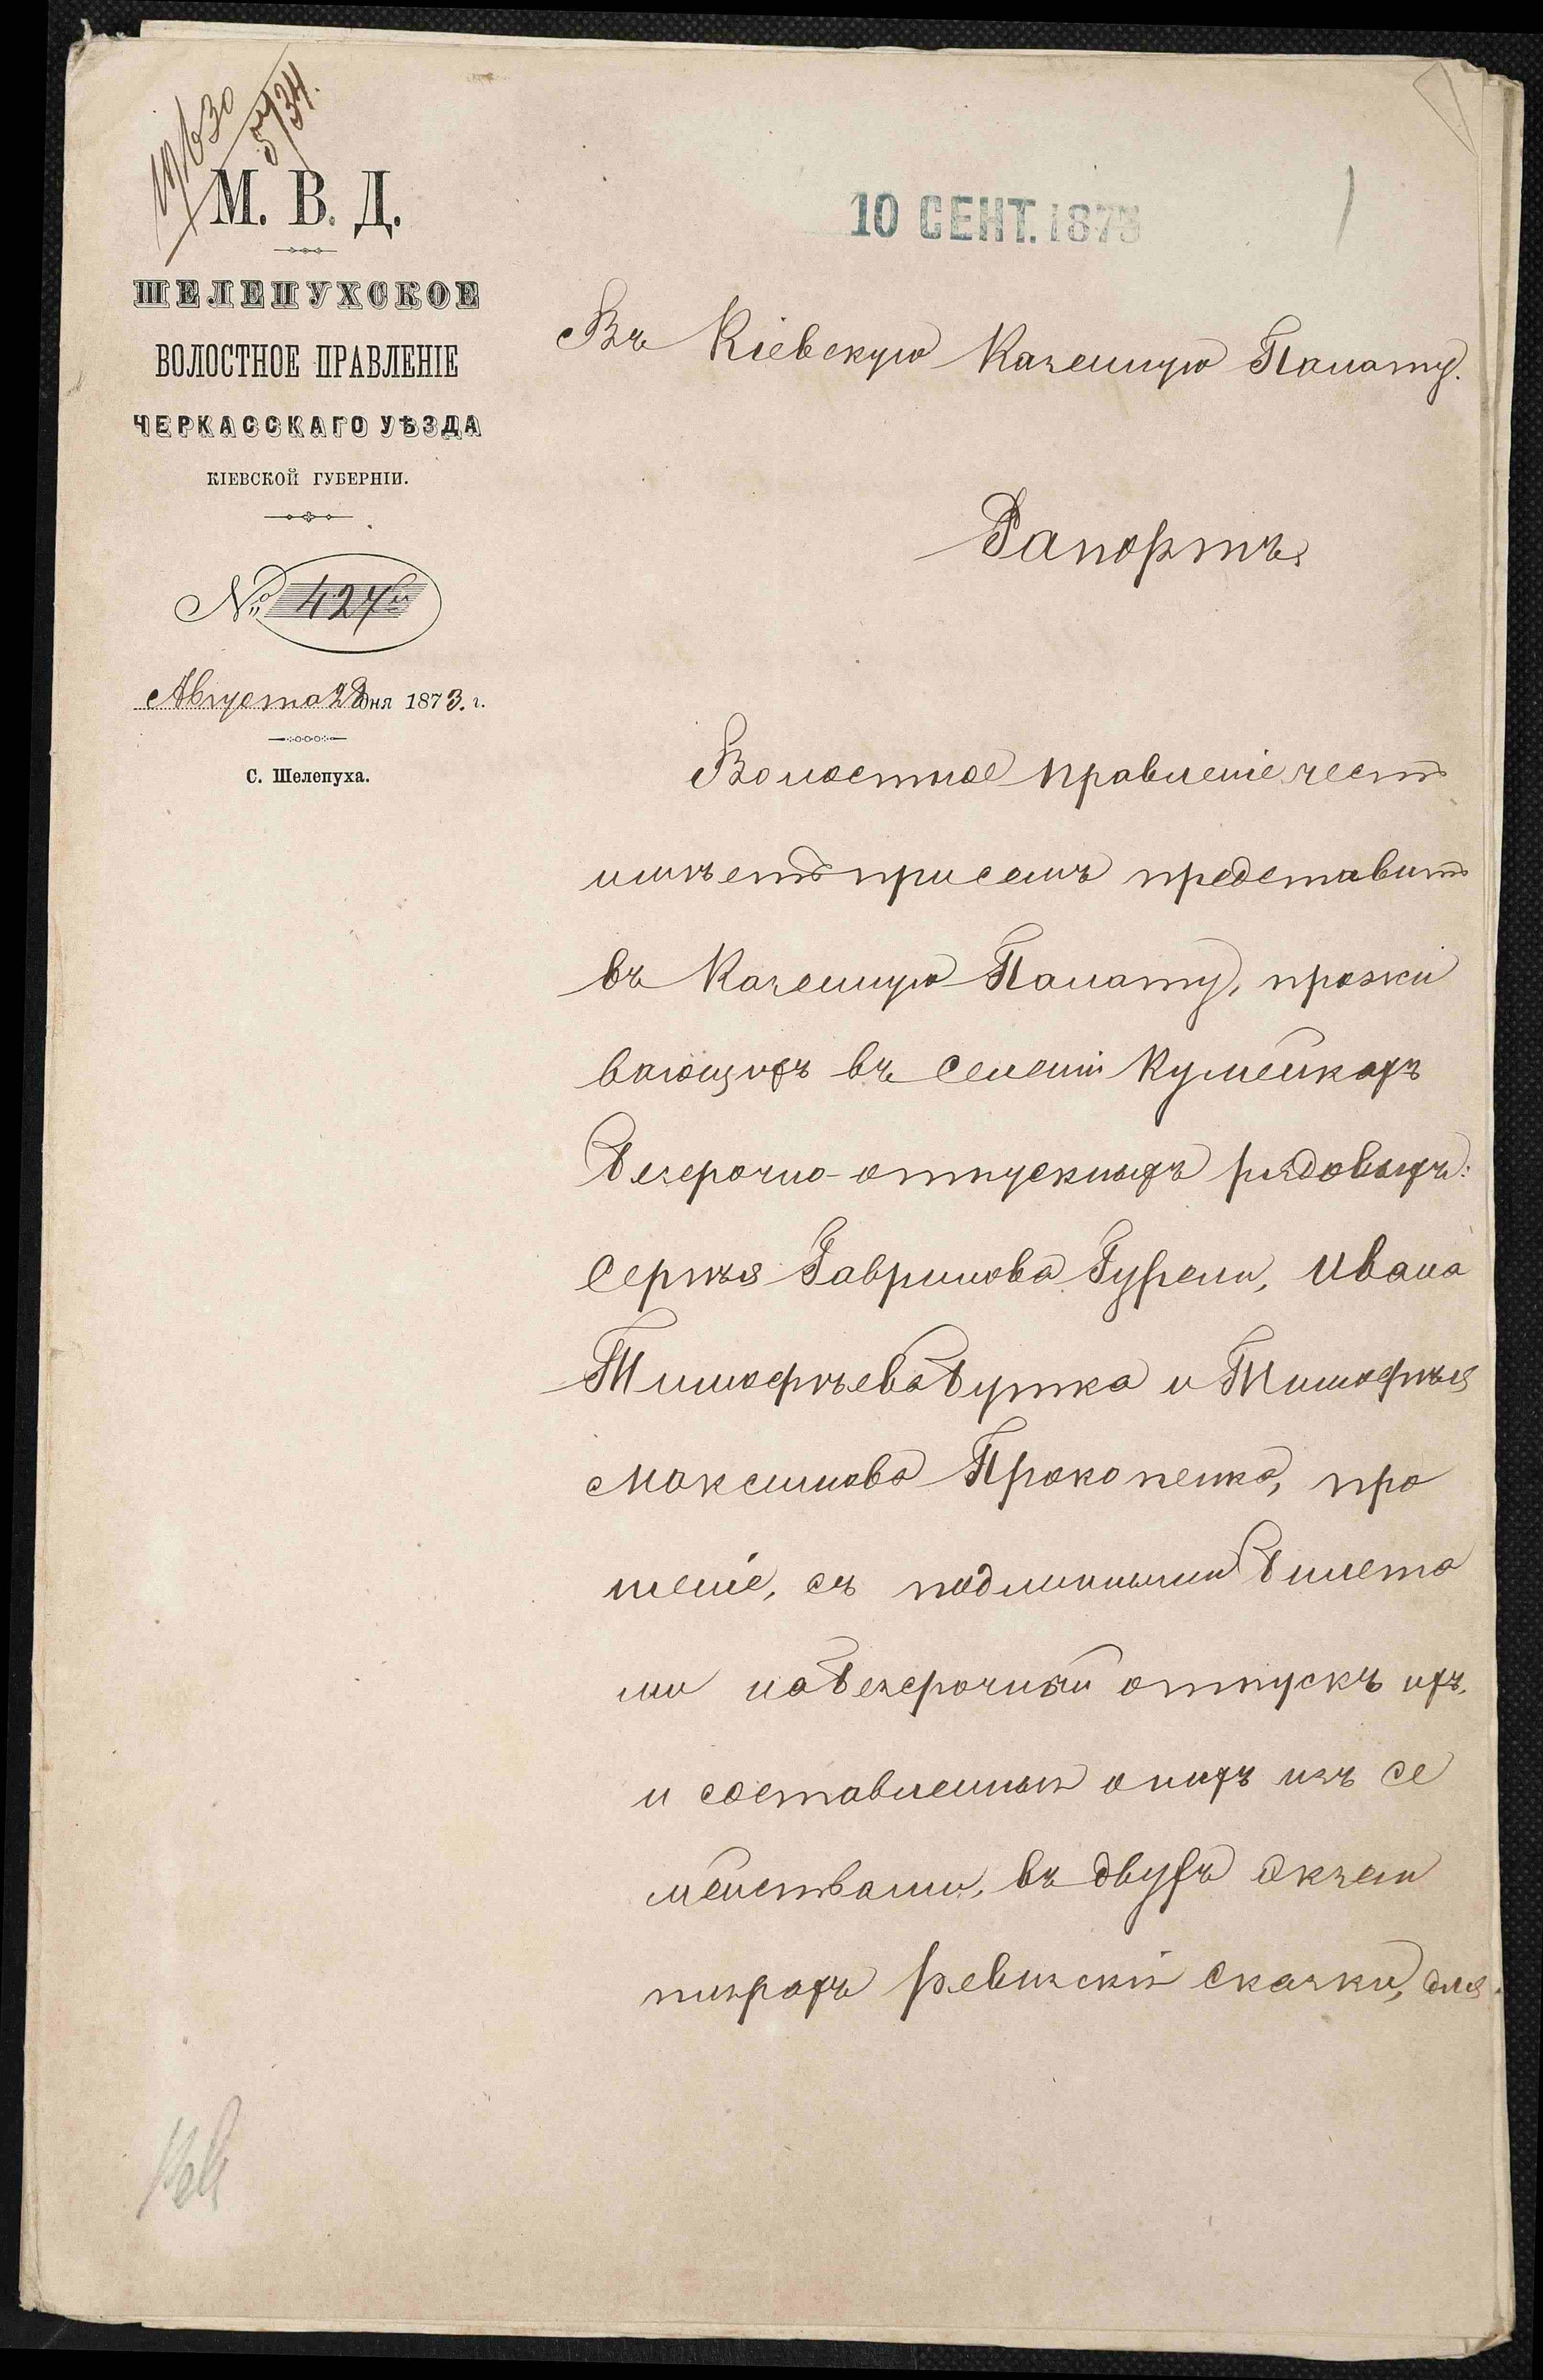 М. В. Д.
ШЕЛЕПУХСКОЕ
ВОЛОСТНОЕ ПРАВЛЕНІЕ
ЧЕРКАССКАГО УѢЗДА
КІЕВСКОЙ ГУБЕРНІИ.
№ 427
Августа 28 дня 1873. г.
С. Шелепуха.
10 СЕНТ. 1873
1
Въ Кіевскую Казенную Палату.
Рапортъ
Волостное правленіе честь
имѣетъ присемъ представить
въ Казенную Палату, прожи
вающихъ въ селеніи Кумейкахъ
безсрочно-отпускныхъ рядовыхъ:
Сергѣя Гаврилова Гузеля, Ивана
Тимофѣева Бутка и Тимофѣя
Максимова Прокопенка, про
шеніе, съ подлинными билета
ми на безсрочный отпускъ ихъ,
и составленныя о нихъ изъ се
мействами, въ двухъ экзем
плярахъ ревизскія сказки, для